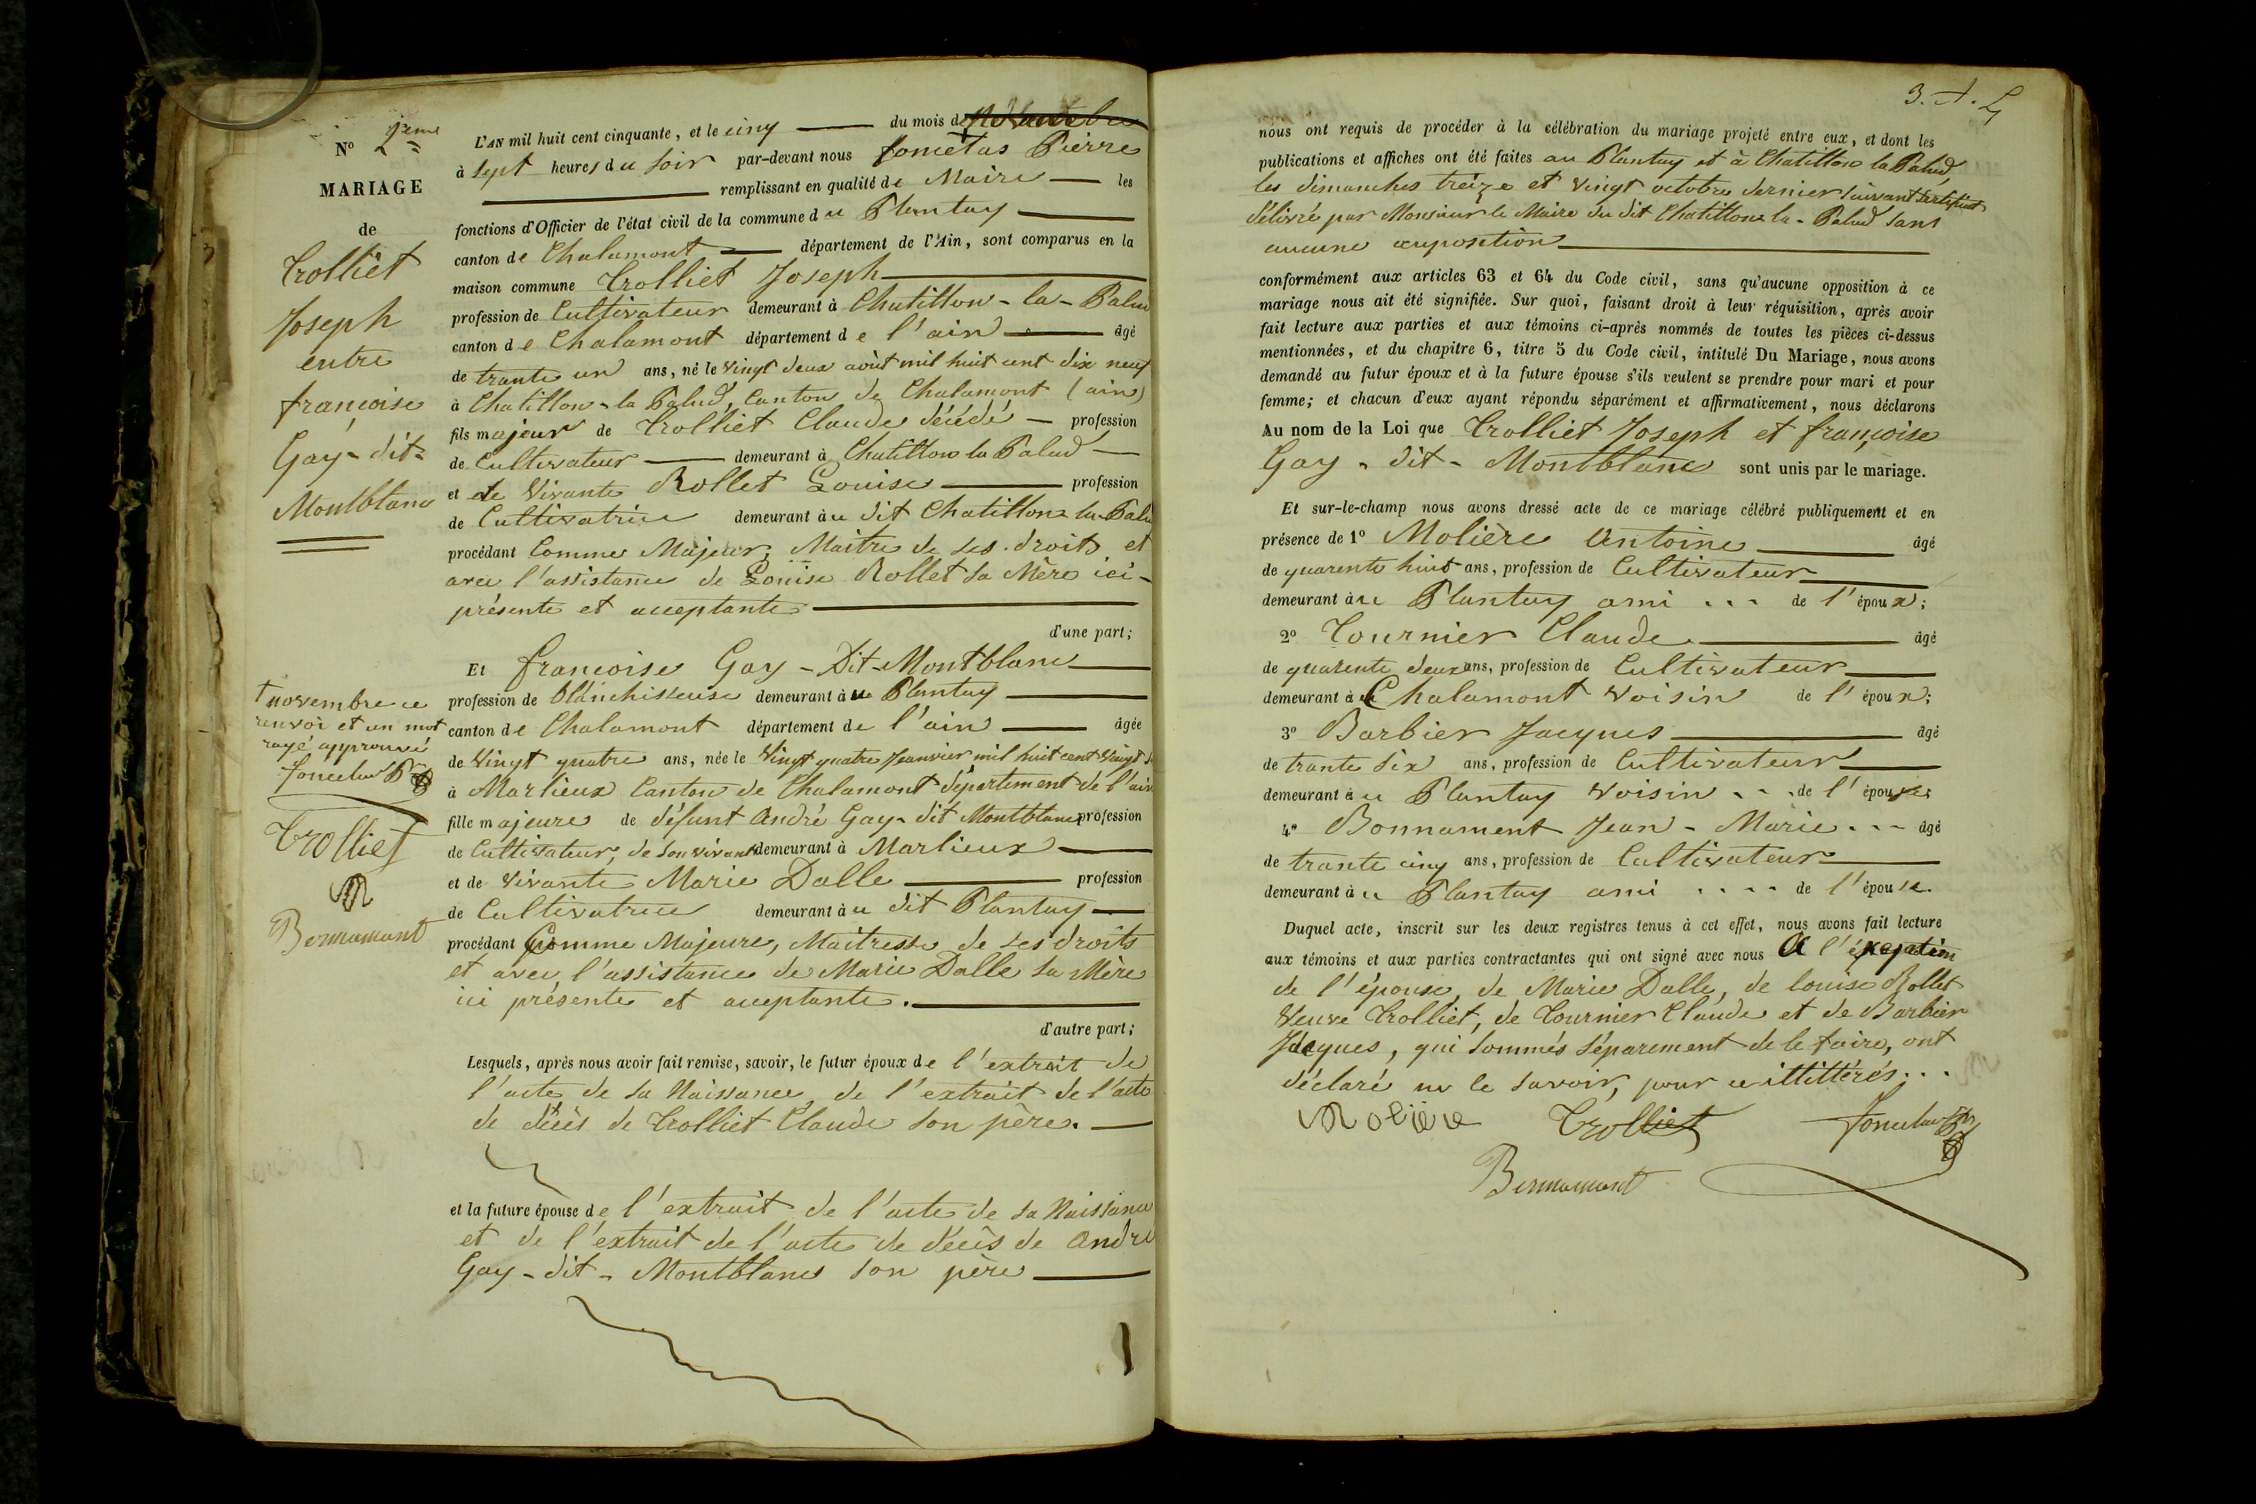 N° 2eme
MARIAGE
de
Trolliet
Joseph
entre
françoise
Gay-dit-
Montblanc
† novembre ce
renvoi et un mot
rayé approuvé
Trolliet
M
Bonnamant
L'AN mil huit cent cinquante, et le cinq du mois de
à sept heures du soir par-devant nous Pierre
remplissant en qualité de Maire les
fonctions d'Officier de l'état civil de la commune du Plantay
canton de Chalamont département de l'Ain, sont comparus en la
maison commune Trolliet Joseph
profession de Cultivateur demeurant à Chatillon-la-Palud
canton de Chalamont département de l'ain âgé
de trante un ans, né le vingt deux août mil huit cent dix neuf
à Chatillon-la Palud, Canton de Chalamont (ain)
fils majeur de Trolliet Claude décédé profession
de Cultivateur demeurant à Chatillon la Palud
et de vivante Rollet Louise profession
de Cultivatrice demeurant au dit Chatillon-la-Palu
procédant Comme Majeur, Maitre de ses droits et
avec l'assistance de Louise Rollet sa Mère ici-
présente et acceptante
d'une part;
Et françoise Gay-Dit-Montblanc
profession de blanchisseuse demeurant au Plantay
canton de Chalamont département de l'ain âgée
de vingt quatre ans, née le vingt quatre Janvier mil huit cent vingt
à Marlieux Canton de Chalamont département de l'ain
fille majeure de défunt André Gay-dit Montblanc profession
de Cultivateur, de son vivant demeurant à Marlieux
et de vivante Marie Dalle profession
de Cultivatrice demeurant au dit Plantay
procédant Comme Majeure, Maitresse de ses droits
et avec l'assistance de Marie Dalle sa Mère
ici présente et acceptante.
d'autre part;
Lesquels, après nous avoir fait remise, savoir, le futur époux de l'extrait de
l'acte de sa Naissance, de l'extrait de l'acte
de décès de Trolliet Claude son père.
et la future épouse de l'extrait de l'acte de sa Naissance
et de l'extrait de l'acte de décès de André
Gay-dit-Montblanc son père
3. A. L
nous ont requis de procéder à la célébration du mariage projeté entre eux, et dont les
publications et affiches ont été faites au Plantay et à Chatillon la Palud,
les dimanches treize et vingt octobre dernier suivant certificat
délivré par Monsieur le Maire du dit Chatillon-la-Palud sans
aucune opposition
conformément aux articles 63 et 64 du Code civil, sans qu'aucune opposition à ce
mariage nous ait été signifiée. Sur quoi, faisant droit à leur réquisition, après avoir
fait lecture aux parties et aux témoins ci-après nommés de toutes les pièces ci-dessus
mentionnées, et du chapitre 6, titre 5 du Code civil, intitulé Du Mariage, nous avons
demandé au futur époux et à la future épouse s'ils veulent se prendre pour mari et pour
femme; et chacun d'eux ayant répondu séparément et affirmativement, nous déclarons
Au nom de la Loi que Trolliet Joseph et françoise
Gay-dit-Montblanc sont unis par le mariage.
Et sur-le-champ nous avons dressé acte de ce mariage célébré publiquement et en
présence de 1° Molière Antoine âgé
de quarente huit ans, profession de Cultivateur
demeurant au Plantay ami ... de l'époux;
2° Tournier Claude âgé
de quarente deux ans, profession de Cultivateur
demeurant à Chalamont voisin de l'époux;
3° Barbier Jacques âgé
de trante six ans, profession de Cultivateur
demeurant au Plantay voisin ... de l'épouse;
4° Bonnament Jean-Marie ... âgé
de trante cinq ans, profession de Cultivateur
demeurant au Plantay ami .... de l'épouse.
Duquel acte, inscrit sur les deux registres tenus à cet effet, nous avons fait lecture
aux témoins et aux parties contractantes qui ont signé avec nous A l'éxeption
de l'épouse, de Marie Dalle, de louise Rollet
Veuve Trolliet, de Tournier Claude et de Barbier
Jacques, qui sommés séparement de le faire, ont
déclaré ne le savoir, pour ce illittérés...
Molière Trolliet
Bonnamant